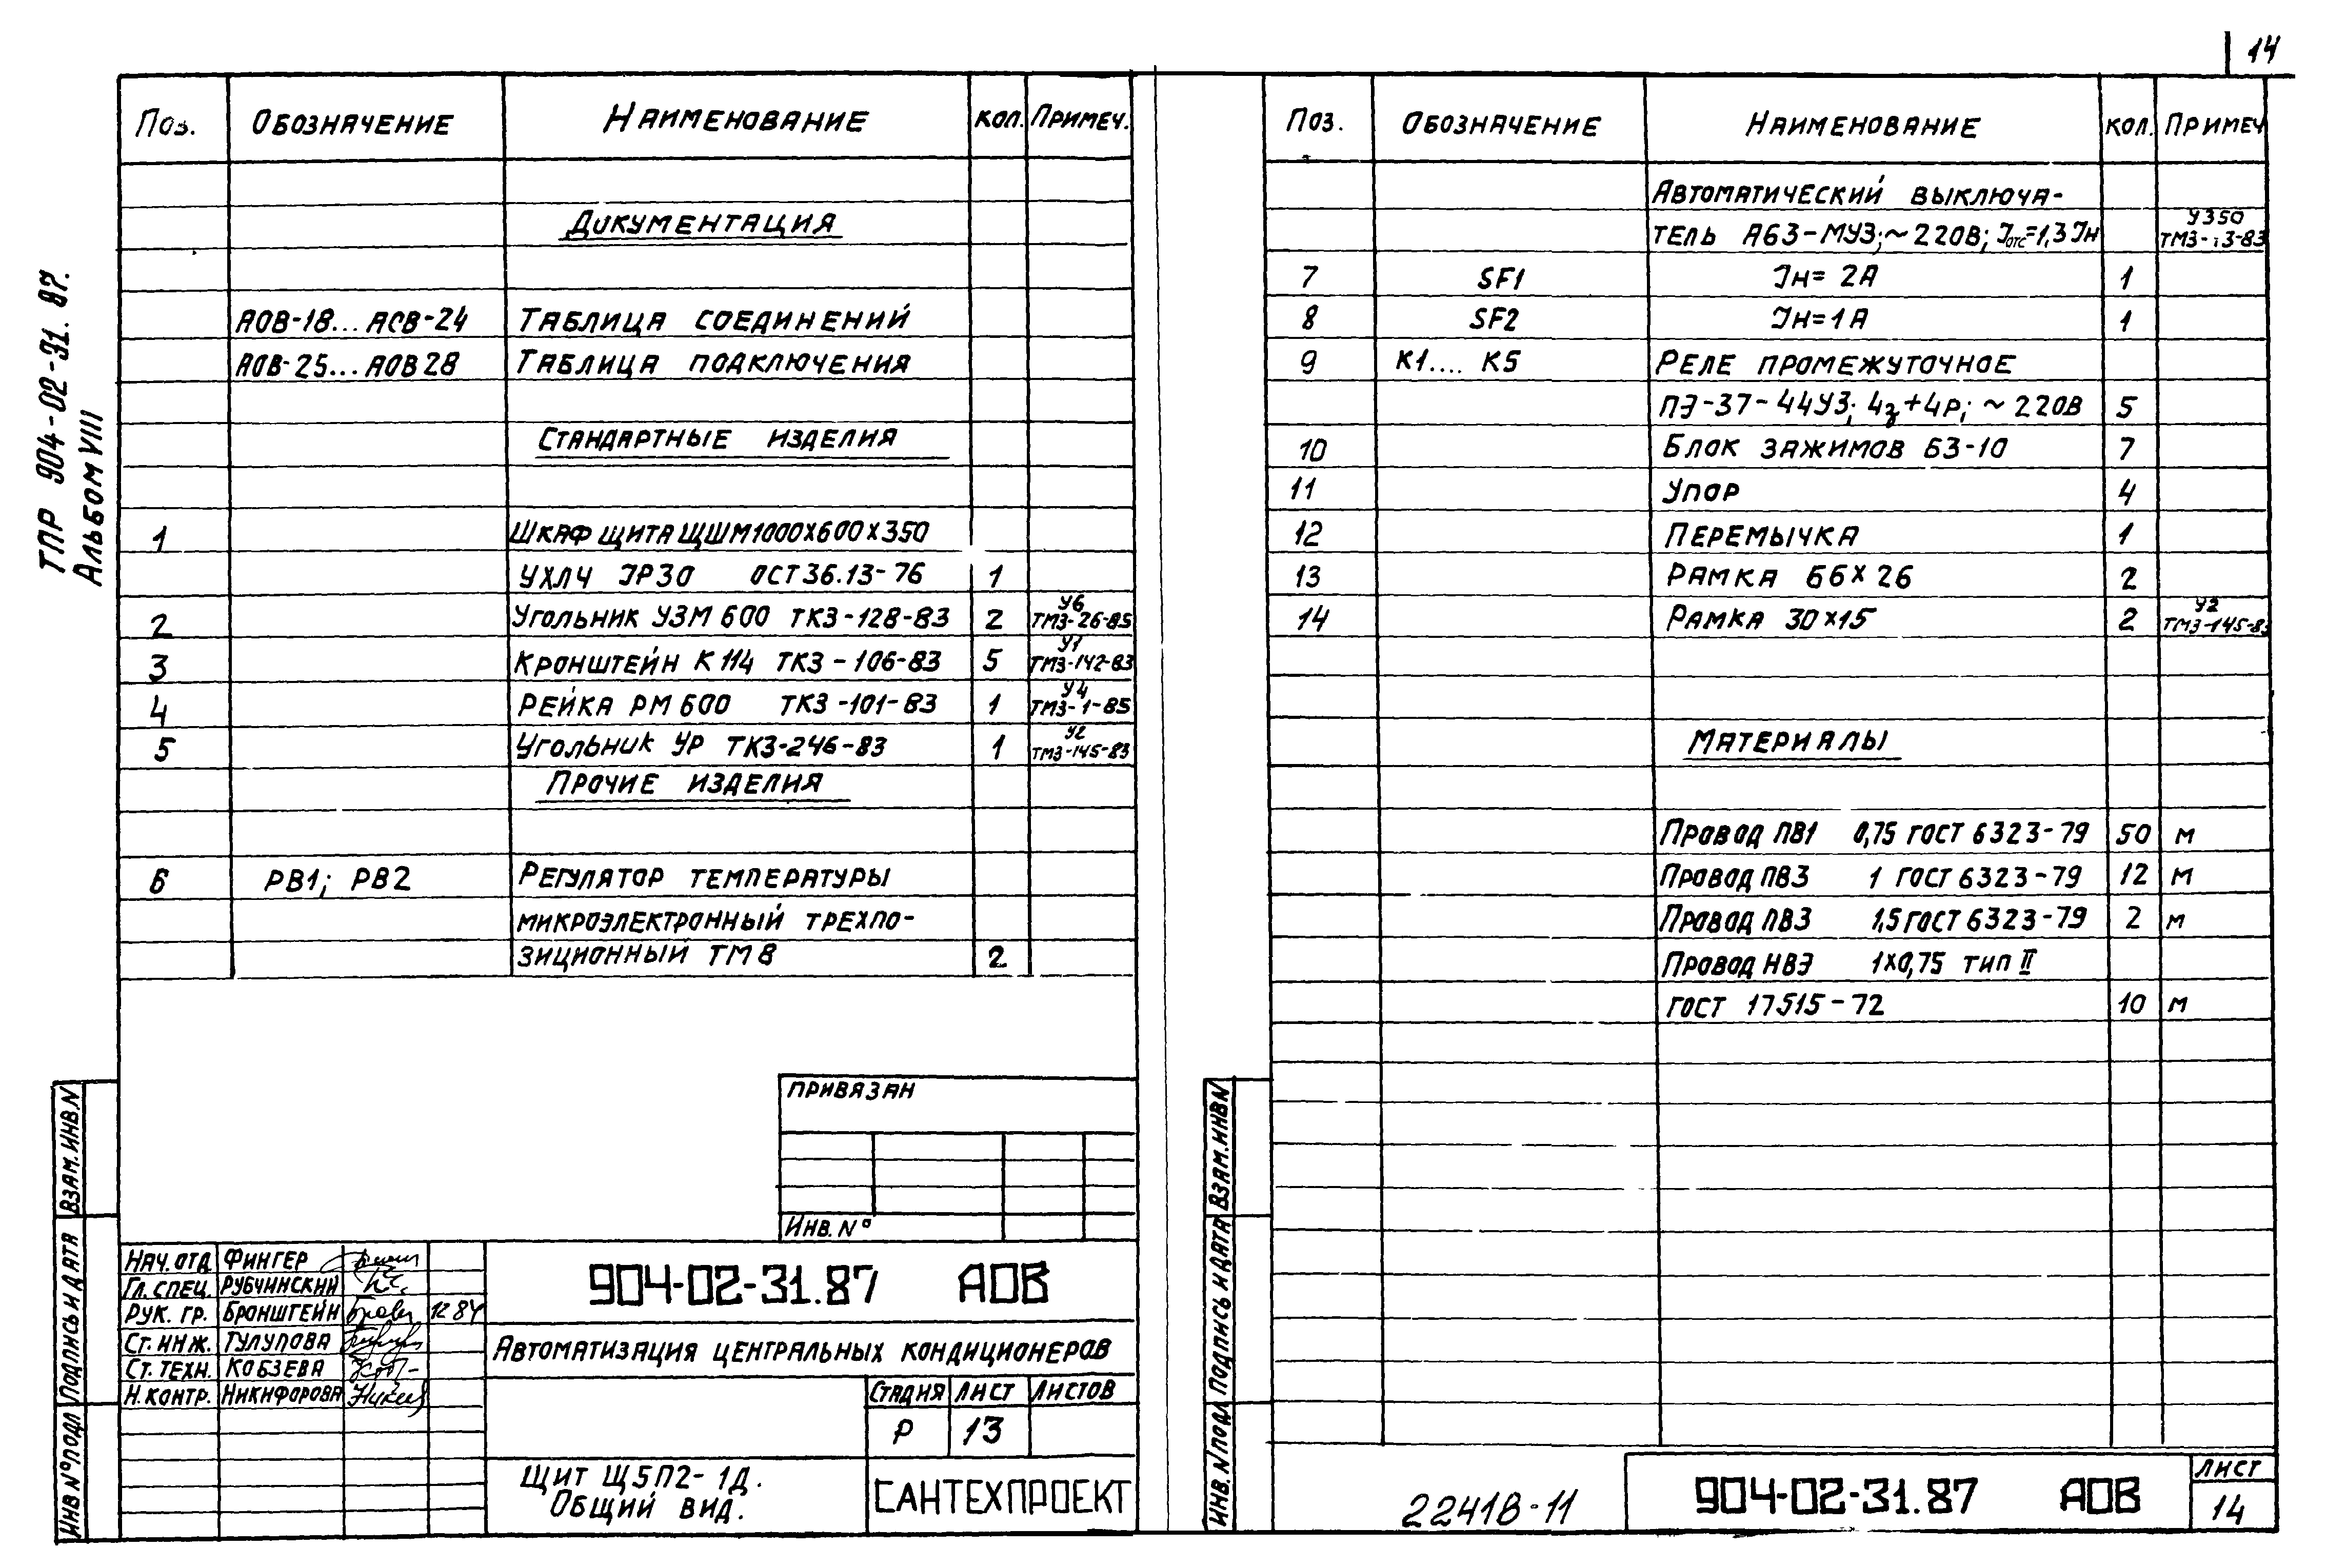 14
ТПР 904-02-31.87.
Альбом VIII
Поз. Обозначение Наименование Кол. Примеч.
Документация
АОВ-18...АОВ-24 Таблица соединений
АОВ-25...АОВ28 Таблица подключения
Стандартные изделия
1 Шкаф щита ЩШМ1000х600х350
УХЛЧ IP30 ОСТ36.13-76 1
2 Угольник УЗМ 600 ТКЗ-128-83 2 У6 ТМЗ-26-85
3 Кронштейн К114 ТКЗ-106-83 5 У1 ТМЗ-142-83
4 Рейка РМ600 ТКЗ-101-83 1 У4 ТМЗ-1-85
5 Угольник УР ТКЗ-246-83 1 У2 ТМЗ-145-83
Прочие изделия
6 РВ1; РВ2 Регулятор температуры
микроэлектронный трехпо-
зиционный ТМ8 2
Привязан
Инв. N°
Нач. отд Фингер
Гл. спец. Рубчинский
Рук. гр. Бронштейн 12 84
Ст. инж. Тулупова
Ст. техн. Кобзева
Н. контр. Никифорова
904-02-31.87 АОВ
Автоматизация центральных кондиционеров
Стадия Лист Листов
Р 13
Щит Щ5П2-1Д.
Общий вид.
САНТЕХПРОЕКТ
Взам. инв N
Подпись и дата
Инв N° подл
Поз. Обозначение Наименование Кол. Примеч
Автоматический выключа-
тель А63-МУЗ; ~220В; Iотс=1,3 Iн У350
7 SF1 Iн= 2А 1
8 SF2 Iн=1А 1
9 К1.... К5 Реле промежуточное
ПЭ-37-44УЗ; 4з+4р; ~220В 5
10 Блок зажимов БЗ-10 7
11 Упор 4
12 Перемычка 1
13 Рамка 66х26 2
14 Рамка 30х15 2 У2 ТМЗ-145-83
Материалы
Провод ПВ1 0,75 ГОСТ 6323-79 50 м
Провод ПВЗ 1 ГОСТ 6323-79 12 м
Провод ПВЗ 1,5 ГОСТ 6323-79 2 м
Провод НВЭ 1х0,75 тип II
ГОСТ 17515-72 10 м
Взам. инв N
Подпись и дата
Инв. N подл
22418-11
904-02-31.87 АОВ
Лист
14